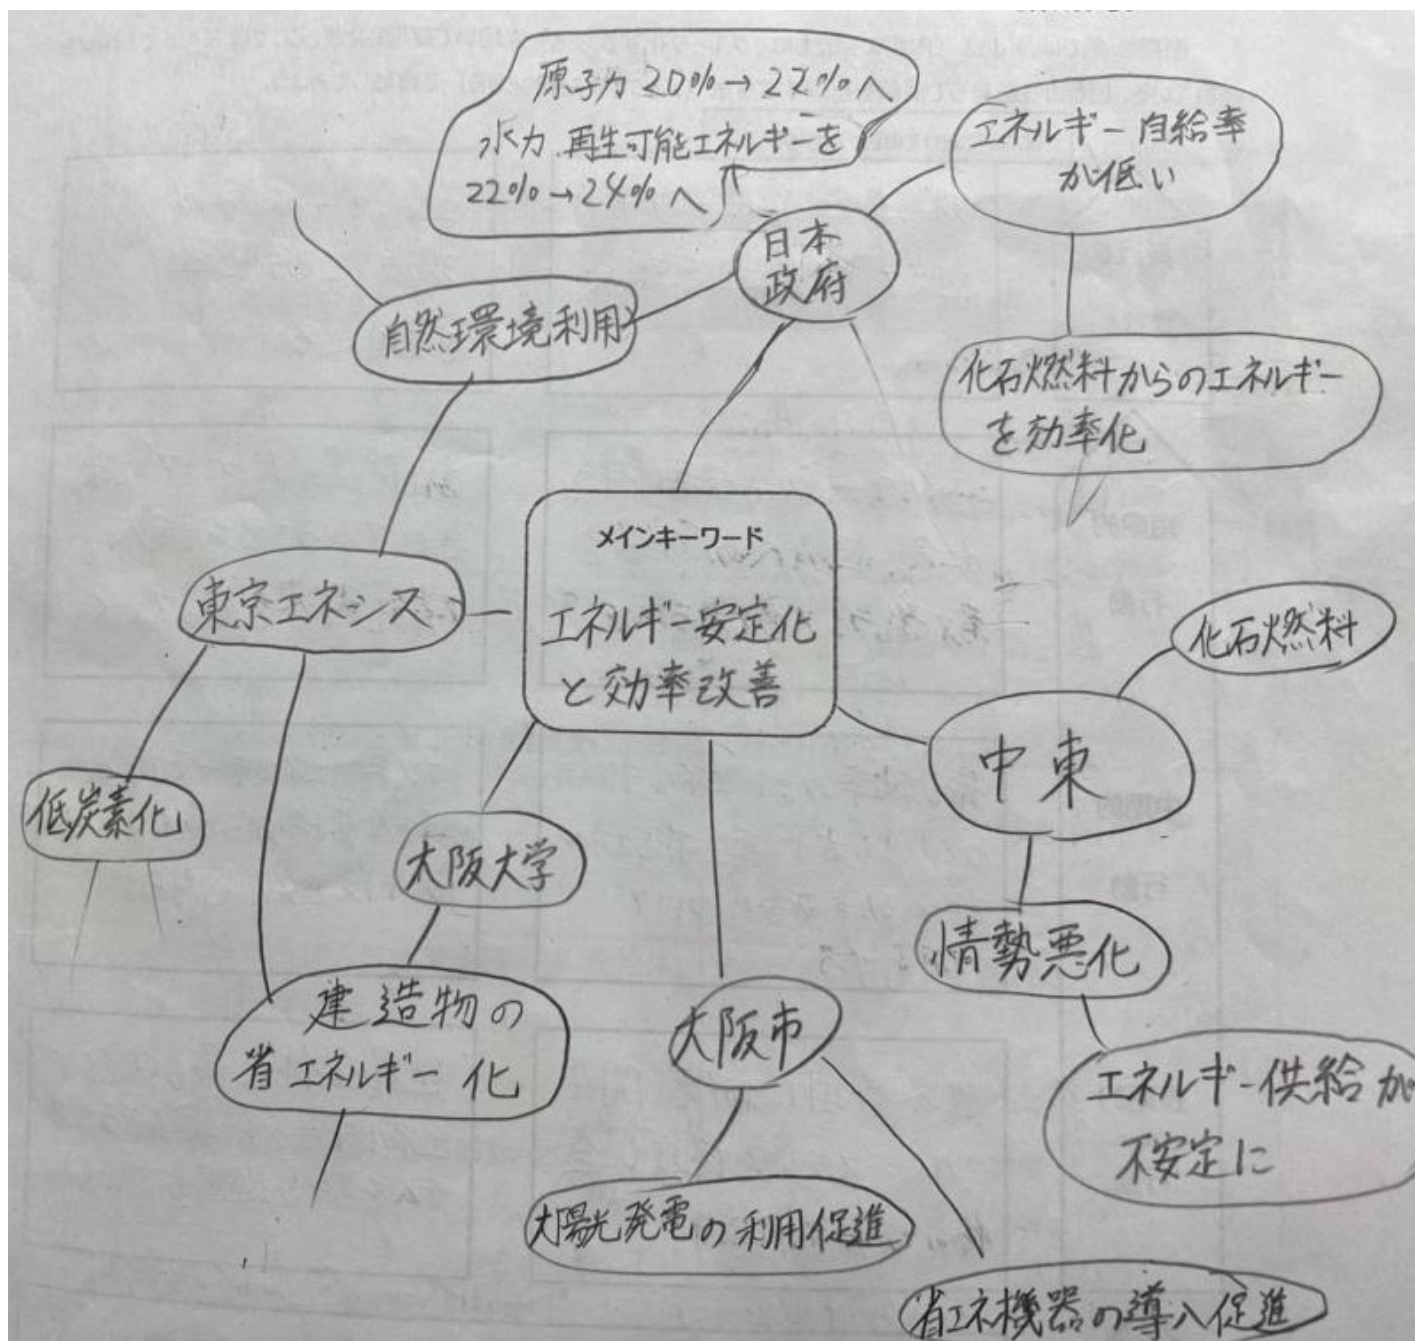 原子力 20%→22%へ
水力、再生可能エネルギーを
22%→24%へ
エネルギー自給率
が低い
日本
政府
自然環境利用
化石燃料からのエネルギー
を効率化
メインキーワード
エネルギー安定化
と効率改善
東京エネシス
化石燃料
中東
低炭素化
大阪大学
情勢悪化
建造物の
省エネルギー化
大阪市
エネルギー供給が
不安定に
太陽光発電の利用促進
省エネ機器の導入促進